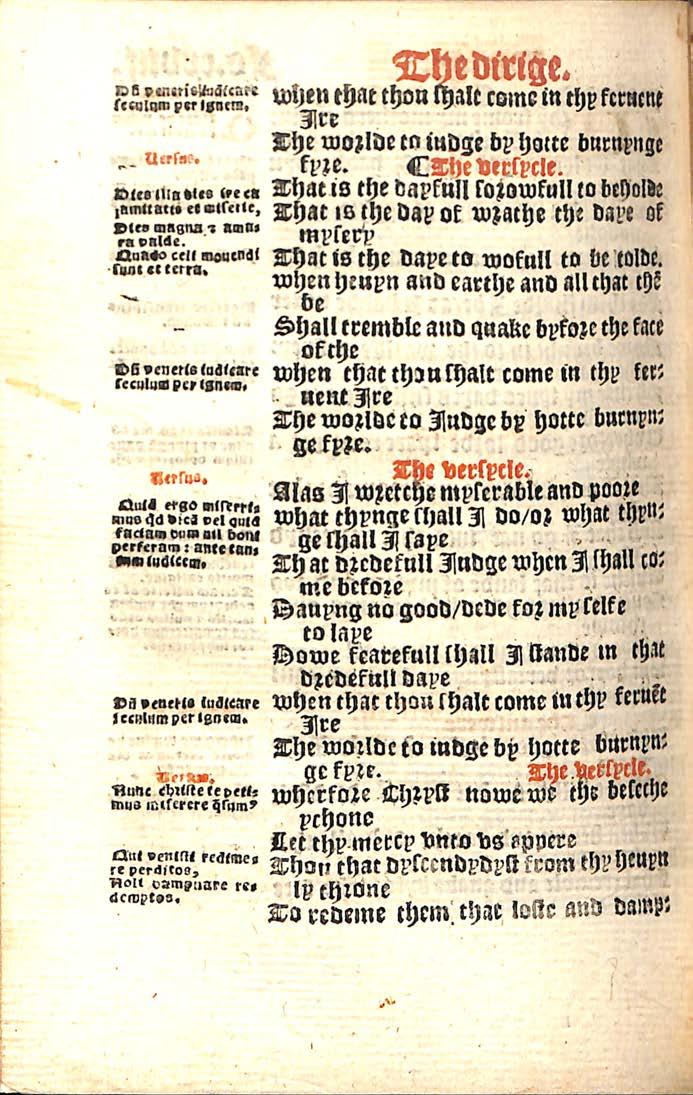 The dirige.
Dñ veneris iudicare
seculum per ignem.
when that thou shalt come in thy feruent
Ire
The worlde to iudge by hotte burnynge
fyre. ¶The versycle.
Versus.
Dies illa dies ire ca
lamitatis et miserie,
Dies magna ⁊ ama-
ra valde.
Quãdo celi mouendi
sunt et terra.
That is the dayfull sorowfull to beholde
That is the day of wrathe the daye of
mysery
That is the daye to wofull to be tolde.
when heuyn and earthe and all that thẽ
be
Shall tremble and quake byfore the face
of the
Dñ veneris iudicare
seculum per ignem.
when that thou shalt come in thy fer-
uent Ire
The worlde to Iudge by hotte burnyn-
ge fyre.
The versycle.
Versus.
Quid ergo miserri-
mus qd dicã vel quid
faciam dum nil boni
perferam : ante tan-
tum iudicem.
Alas I wretche myserable and poore
what thynge shall I do/or what thyn-
ge shall I saye
That dredefull Iudge when I shall co-
me before
Hauyng no good/dede for my selfe
to laye
Howe fearefull shall I stande in that
dredefull daye
Dñ veneris iudicare
seculum per ignem.
when that thou shalt come in thy feruẽt
Ire
The worlde to iudge by hotte burnyn-
ge fyre. The versycle.
Versus.
Nunc christe te peti-
mus miserere qsum⁹
wherfore Chryst nowe we the beseche
ychone
Let thy mercy vnto vs appere
Qui venisti redime-
re perditos,
Noli dampnare re-
demptos.
Thou that dyscendydyst from thy heuyn
ly throne
To redeme them that loste and damp-